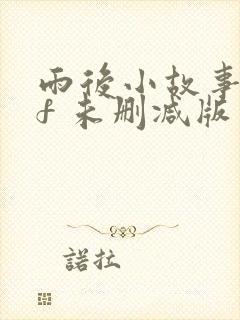 雨後小故事
f 未刪減版
諾拉